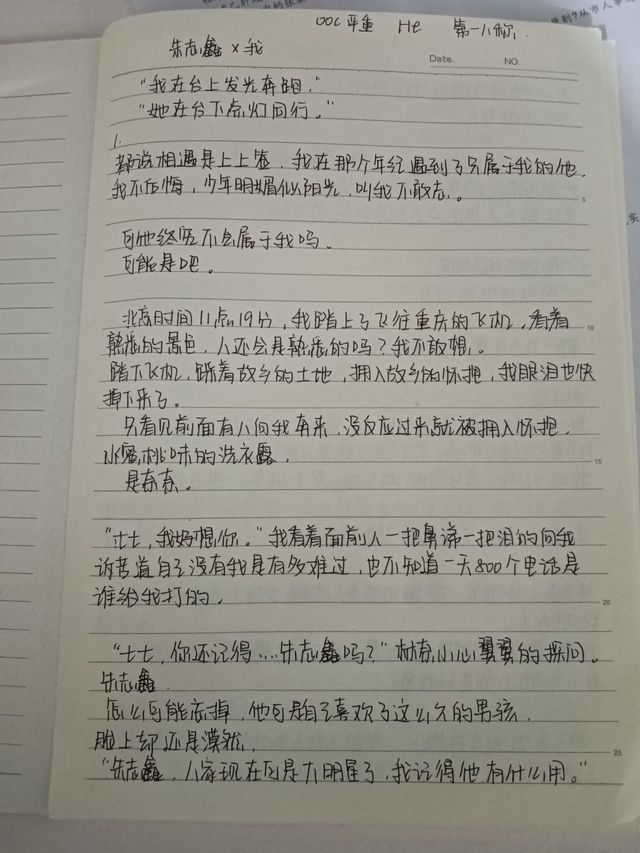 OOC严重 He 第一人称.
朱志鑫 × 我
Date. NO.
"我在台上发光奔跑."
"她在台下点灯同行。"
1.
都说相遇是上上签, 我在那个年纪遇到了只属于我的他,
我不后悔, 少年明媚似阳光, 叫我不敢忘。
5
可他终究不会属于我吗。
可能是吧。
北京时间11点19分, 我踏上了飞往重庆的飞机, 看着
10
熟悉的景色, 人还会是熟悉的吗? 我不敢想。
踏下飞机, 踩着故乡的土地, 拥入故乡的怀抱, 我眼泪也快
掉下来了。
只看见前面有人向我奔来, 没反应过来就被拥入怀抱,
水蜜桃味的洗衣露,
15
是春春。
"七七, 我好想你。"我看着面前人一把鼻涕一把泪的向我
诉苦道自己没有我是有多难过, 也不知道一天800个电话是
谁给我打的。
20
"七七, 你还记得....朱志鑫吗?" 林春小心翼翼的探问。
朱志鑫.
怎么可能忘掉, 他可是自己喜欢了这么久的男孩,
脸上却还是漠然,
25
"朱志鑫, 人家现在可是大明星了, 我记得他有什么用。"